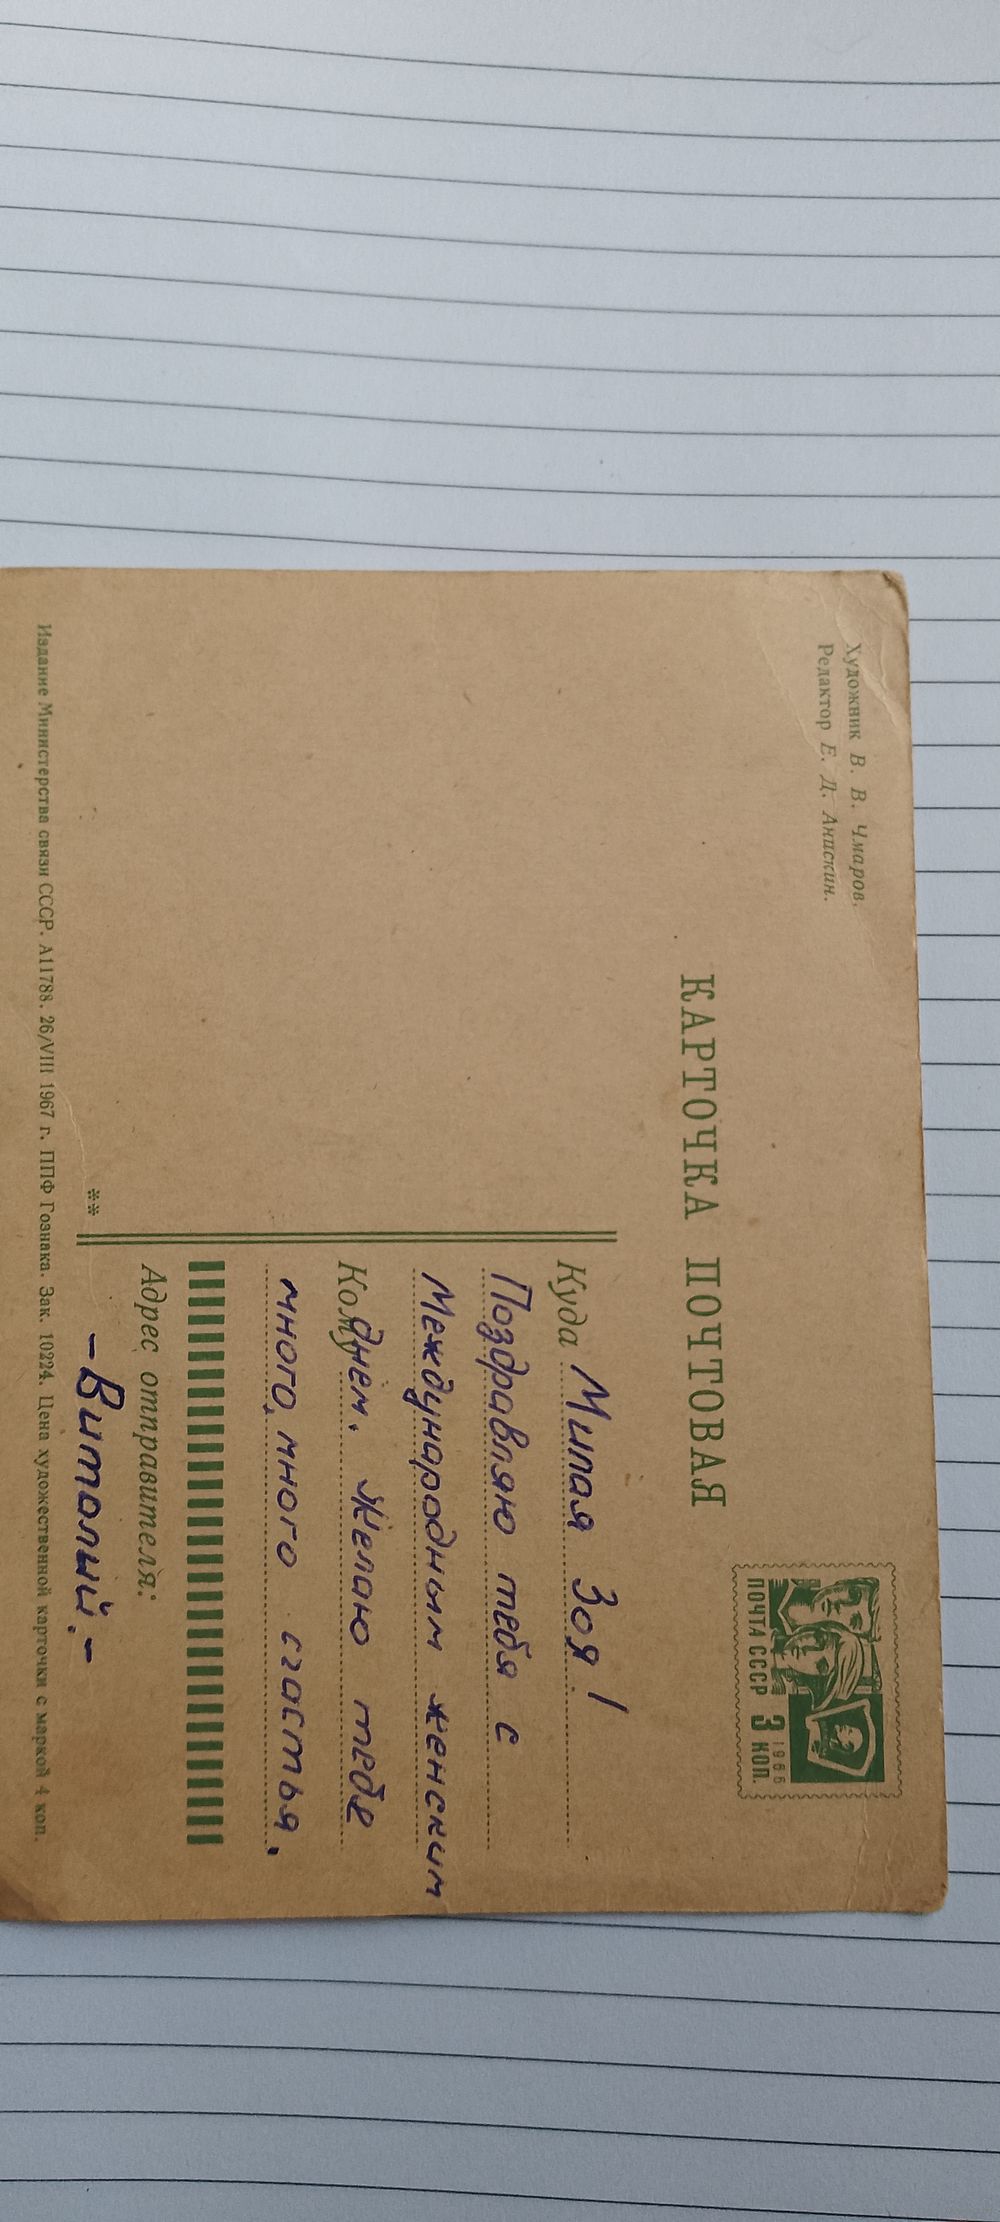 Художник В. В. Чмаров.
Редактор Е. Д. Анискин.
КАРТОЧКА ПОЧТОВАЯ
ПОЧТА СССР 3 КОП.
1966
Куда Милая Зоя!
Поздравляю тебя с
Международным женским
Кому днем. Желаю тебе
много, много счастья.
Адрес отправителя:
-Виталий.-
**
Издание Министерства связи СССР. А11788. 26/VIII 1967 г. ППФ Гознака. Зак. 10224. Цена художественной карточки с маркой 4 коп.